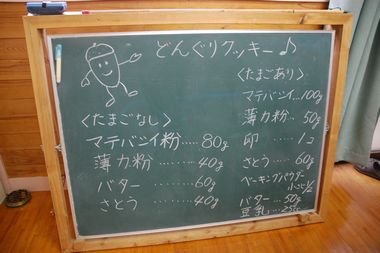 どんぐりクッキー♪
<たまごなし>
マテバシイ粉……80g
薄力粉………40g
バター………60g
さとう………40g
<たまごあり>
マテバシイ…100g
薄力粉…50g
卵……1コ
さとう……60g
ベーキングパウダー
小さじ1/2
バター…50g
豆乳…25cc